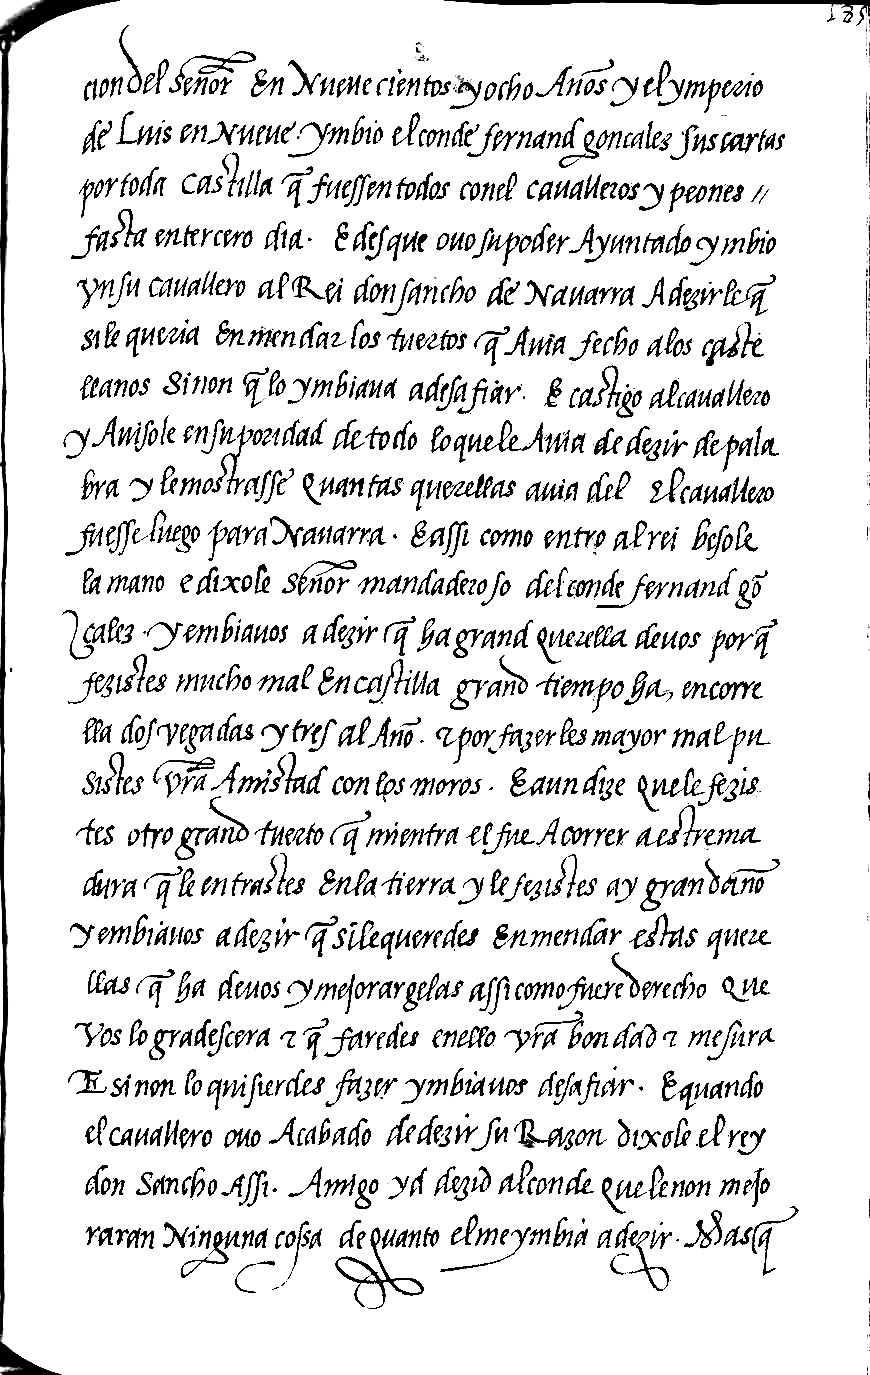 185
cion del señor En Nueve cientos y ocho Años y el ymperio
de Luis en Nueve. ymbio el conde fernand goncalez sus cartas
por toda Castilla q̃ fuessen todos con el cavalleros y peones //
fasta en tercero dia. E desque ovo su poder Ayuntado ymbio
vn su cavallero al Rei don sancho de Navarra A dezirle q̃
si le queria Enmendar los tuertos q̃ Avia fecho a los caste
llanos Sinon q̃ lo ymbiava a desafiar. E castigo al cavallero
y Avisole en su poridad de todo lo que le Avia de dezir de pala
bra y le mostrasse Quantas querellas avia del El cavallero
fuesse luego para Navarra. E assi como entro al rei besole
la mano e dixole señor mandadero so del conde fernand gõ
çalez. y embiavos a dezir q̃ ha grand Querella de vos por q̃
fezistes mucho mal En castilla grand tiempo ha, en corre
lla dos vegadas y tres al Año. & por fazer les mayor mal pu
sistes vr̃a Amistad con los moros. E aun dize que le fezis
tes otro grand tuerto q̃ mientra el fue A correr a estrema
dura q̃ le entrastes En la tierra y le fezistes ay grand daño
y embiavos a dezir q̃ si le queredes Enmendar estas quere
llas q̃ ha de vos y mejorargelas assi como fuere derecho Que
Vos lo gradescera & q̃ faredes en ello vr̃a bondad & mesura
E si non lo quisierdes fazer ymbiavos desafiar. E quando
el cavallero ovo Acabado de dezir su Razon dixole el rey
don Sancho Assi. Amigo yd dezid al conde Que le non mejo
raran Ninguna cossa de quanto el me ymbia a dezir. Mas q̃